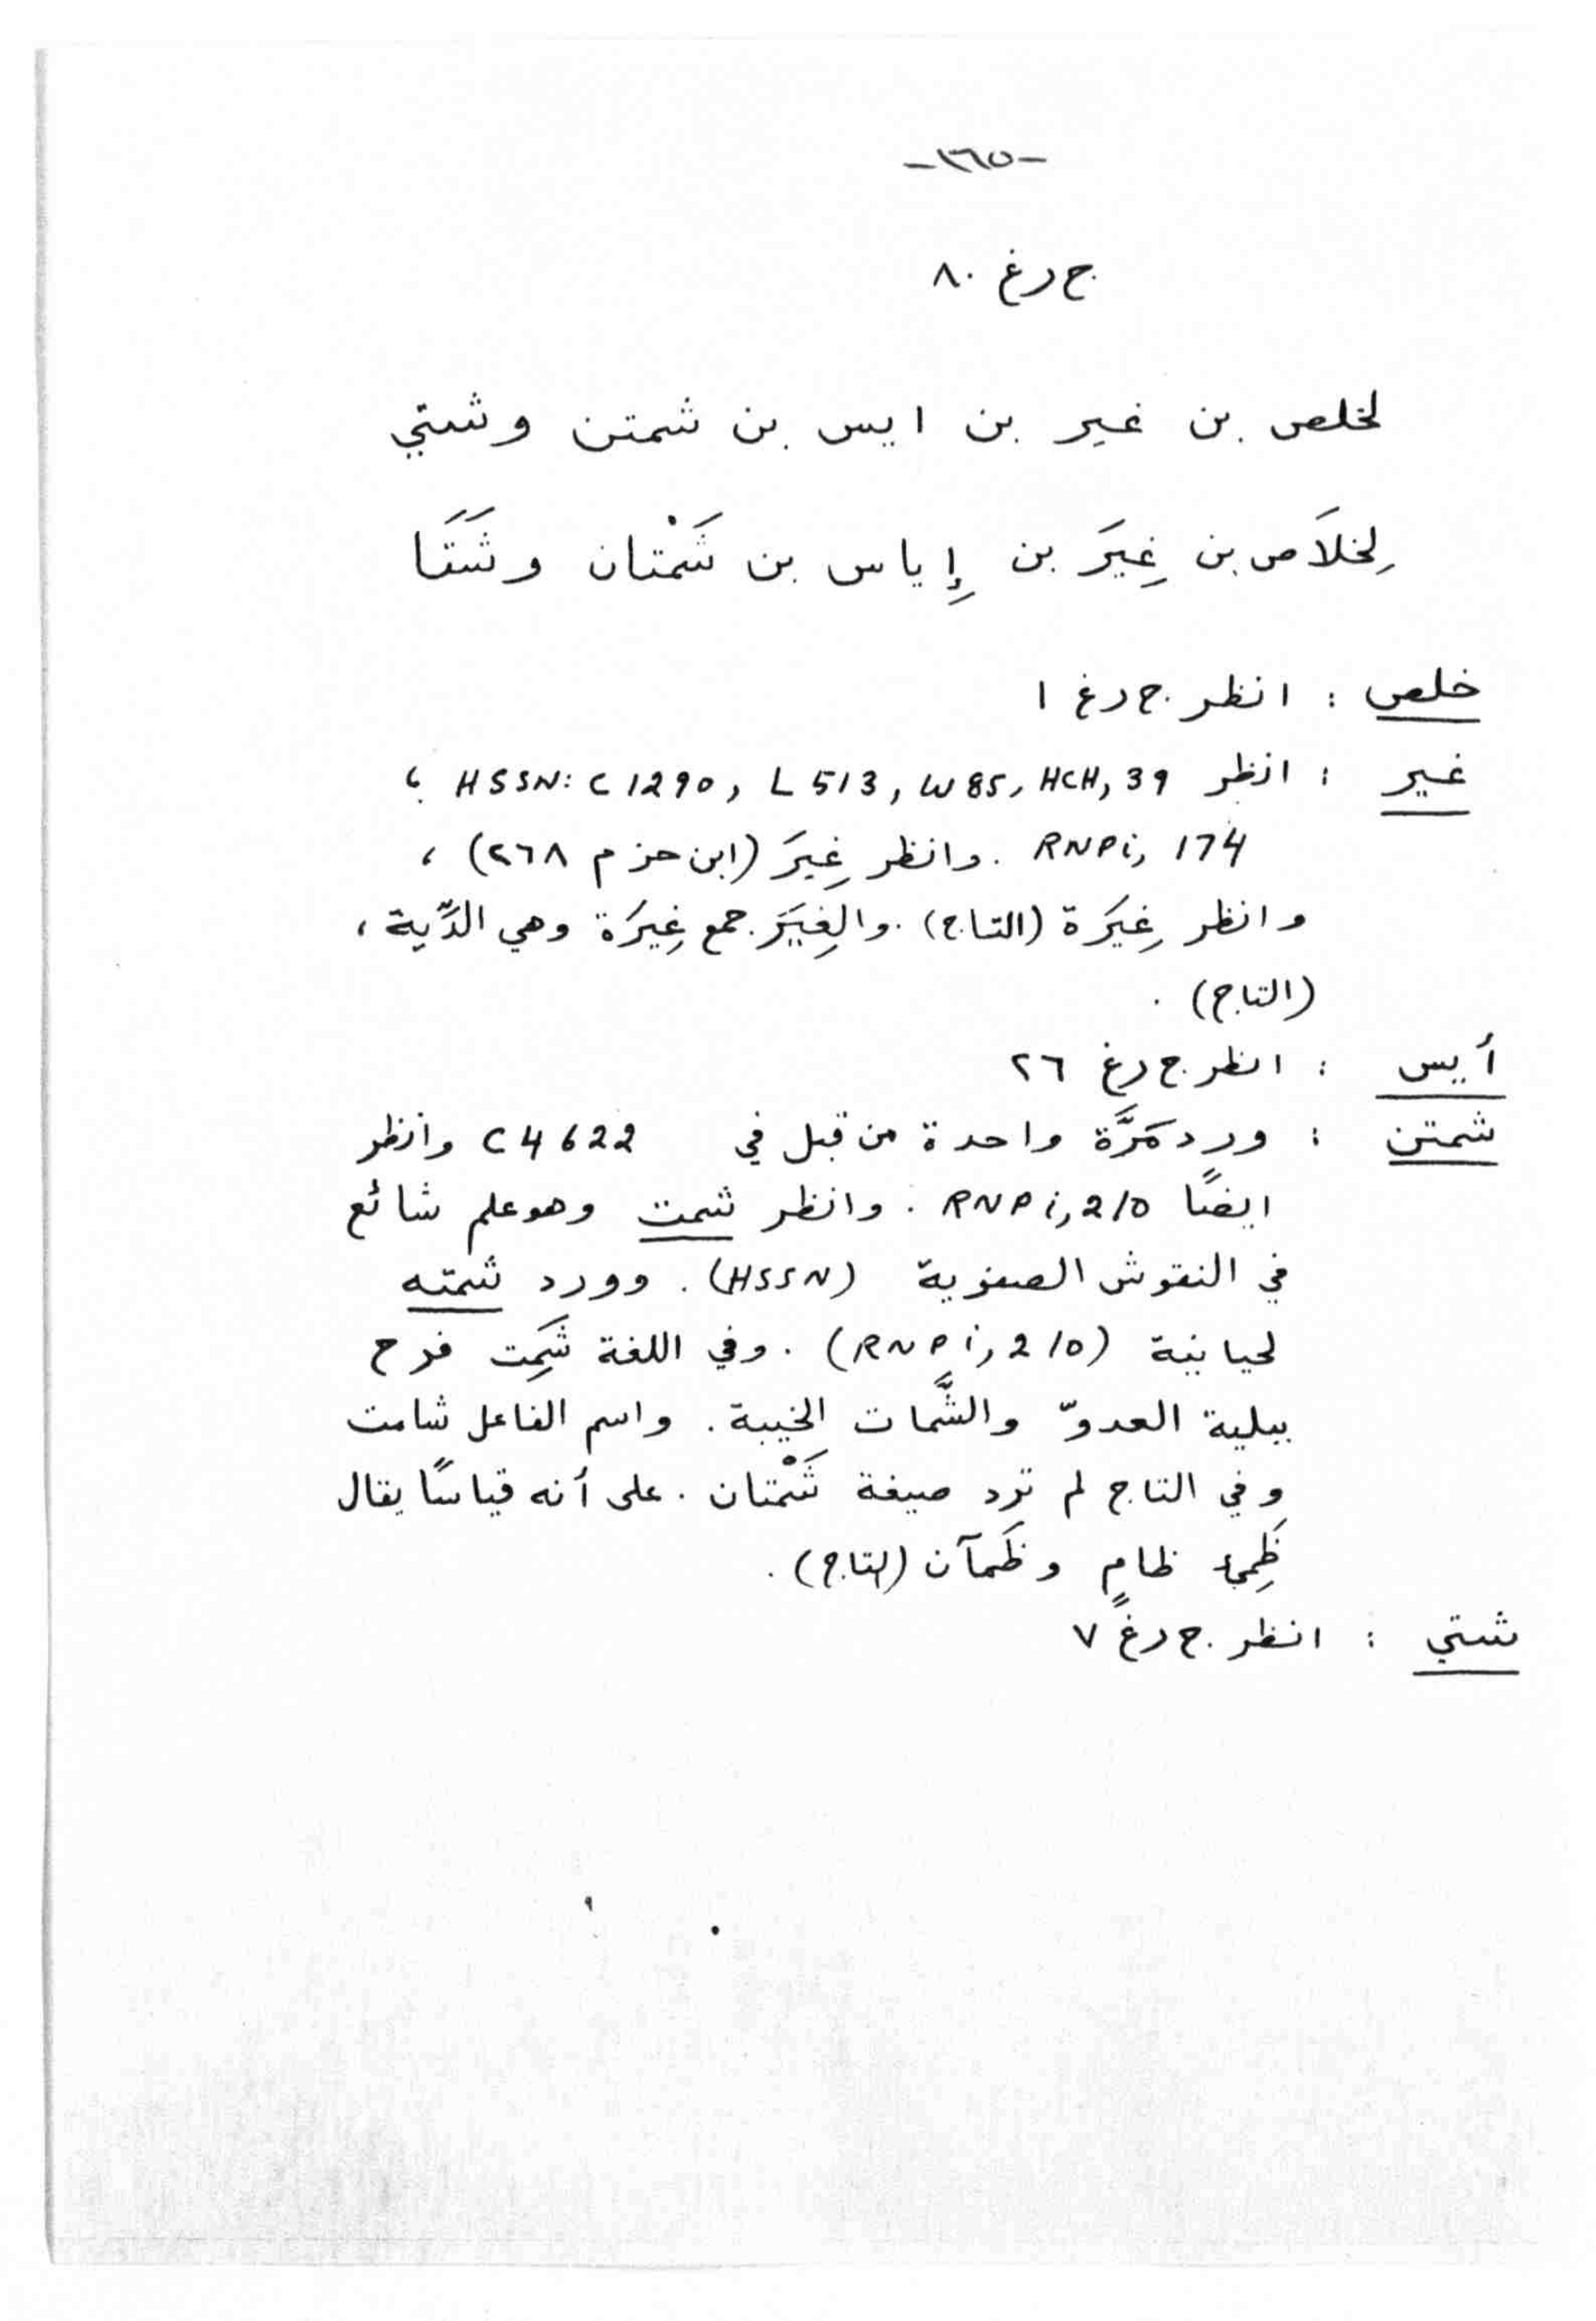 -٣٦٥-
ج رغ ٨٠
لخلص بن غير بن ايس بن شمتن وشتي
لِخلاَص بن غِيَر بن إِياس بن شَمْتان وشَتَا
خلص : انظر ج رغ ١
غير : انظر HSSN: C 1290, L 513, W 85, HCH, 39 ؛
RNP i, 174 . وانظر غِيَر (ابن حزم ٢٦٨) ،
وانظر غِيَرة (التاج) . والغِيَر جمع غِيَرة وهي الدِّية ،
(التاج) .
أيس : انظر ج رغ ٢٦
شمتن : ورد مَرَّة واحدة من قبل في C 4622 وانظر
ايضًا RNP i, 210 . وانظر شمت وهو علم شائع
في النقوش الصفوية (HSSN) . وورد شمته
لحيانية (RNP i, 210) . وفي اللغة شَمِت فرح
ببلية العدوّ والشِّمات الخيبة . واسم الفاعل شامت
وفي التاج لم ترد صيغة شَمْتان . على أنه قياسًا يقال
ظَمِئ ظامٍ وظَمآن (التاج) .
شتي : انظر ج رغ ٧